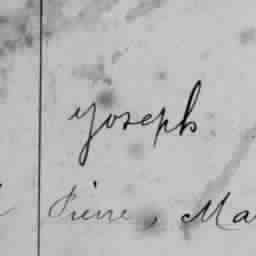 Joseph
Pierre, Ma